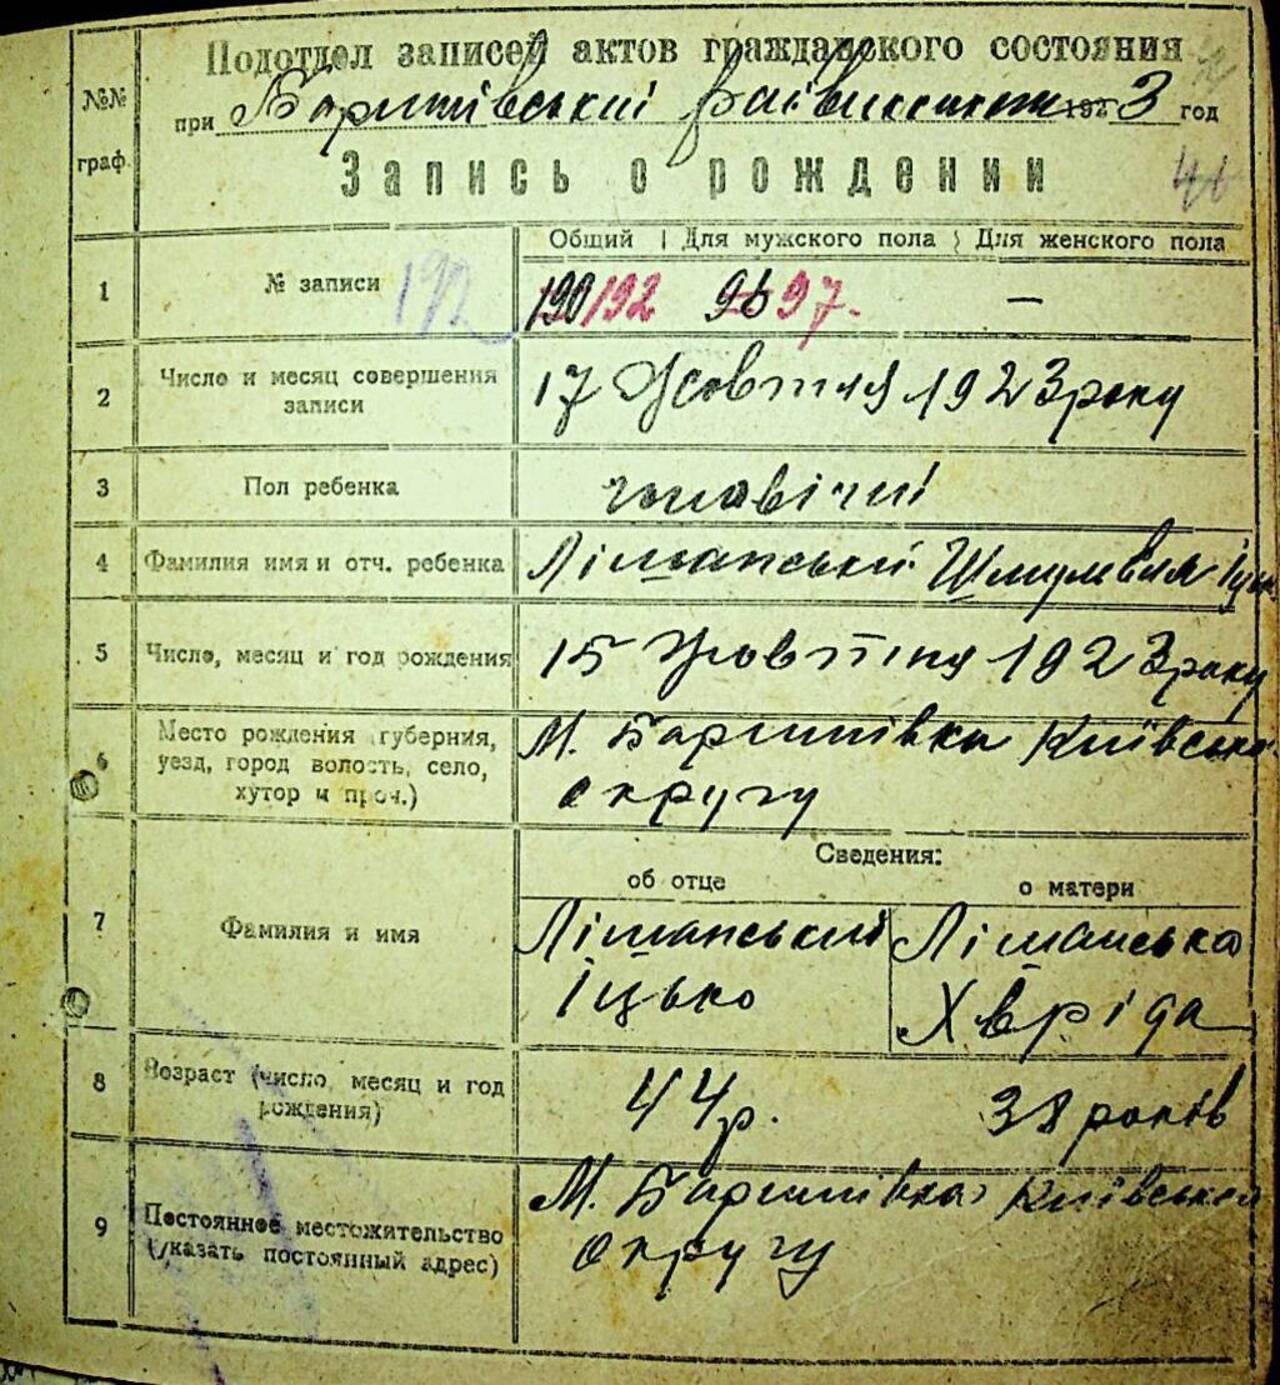 Подотдел записей актов гражданского состояния
№№ граф.
при Баришівський райвиконком 1923 год
Запись о рождении
46
Общий Для мужского пола Для женского пола
1 № записи 192 190/192 96 97. —
2 Число и месяц совершения записи 17 Жовтня 1923 року
3 Пол ребенка чоловічий
4 Фамилия имя и отч. ребенка Ліманський
5 Число, месяц и год рождения 15 Жовтня 1923 року
6 Место рождения (губерния, уезд, город волость, село, хутор и проч.) М. Баришівка Київської
округу
Сведения:
об отце о матери
7 Фамилия и имя Ліманський Ліманська
Іцько Хвріда
8 Возраст (число, месяц и год рождения) 44 р. 38 років
9 Постоянное местожительство (указать постоянный адрес) М. Баришівка, Київської
округу